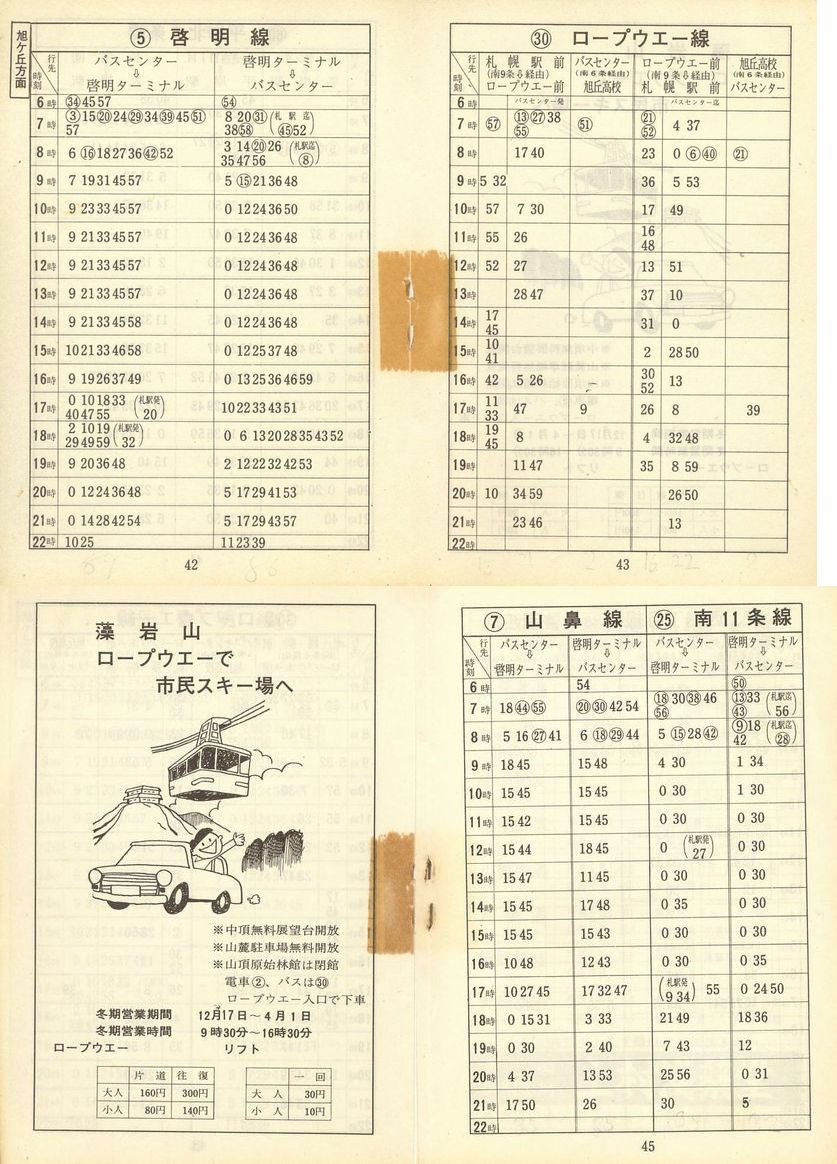 旭ケ丘方面
⑤ 啓明線
行先 時刻 バスセンター ⇩ 啓明ターミナル 啓明ターミナル ⇩ バスセンター
6時 ㉞ 45 57 54
7時 ③ 15 ⑳ 24 ㉙ 34 ㊴ 45 51 57 8 20 ㉛ 38 58 (札駅迄 ㊺ 52)
8時 6 ⑯ 18 27 36 ㊷ 52 3 14 ⑳ 26 35 47 56 (札駅迄 ⑧)
9時 7 19 31 45 57 5 ⑮ 21 36 48
10時 9 23 33 45 57 0 12 24 36 50
11時 9 21 33 45 57 0 12 24 36 48
12時 9 21 33 45 57 0 12 24 36 48
13時 9 21 33 45 57 0 12 24 36 48
14時 9 21 33 45 58 0 12 24 36 48
15時 10 21 33 46 58 0 12 25 37 48
16時 9 19 26 37 49 0 13 25 36 46 59
17時 0 10 18 33 40 47 55 (札駅発 20) 10 22 33 43 51
18時 2 10 19 29 49 59 (札駅発 32) 0 6 13 20 28 35 43 52
19時 9 20 36 48 2 12 22 32 42 53
20時 0 12 24 36 48 5 17 29 41 53
21時 0 14 28 42 54 5 17 29 43 57
22時 10 25 11 23 39
42
㉚ ロープウエー線
行先 時刻 札幌駅前 (南9条⇩経由) ロープウエー前 バスセンター (南6条経由) 旭丘高校 ロープウエー前 (南9条⇩経由) 札幌駅前 旭丘高校 (南6条経由) バスセンター
6時 バスセンター発 バスセンター迄
7時 57 ⑬ ㉗ 38 55 51 ㉑ 52 4 37
8時 17 40 23 0 ⑥ ㊵ ㉑
9時 5 32 36 5 53
10時 57 7 30 17 49
11時 55 26 16 48
12時 52 27 13 51
13時 28 47 37 10
14時 17 45 31 0
15時 10 41 2 28 50
16時 42 5 26 30 52 13
17時 11 33 47 9 26 8 39
18時 19 45 8 4 32 48
19時 11 47 35 8 59
20時 10 34 59 26 50
21時 23 46 13
22時
43
藻岩山
ロープウエーで
市民スキー場へ
※中頂無料展望台開放
※山麓駐車場無料開放
※山頂原始林館は閉館
電車②、バスは㉚
ロープウエー入口で下車
冬期営業期間 12月17日〜4月1日
冬期営業時間 9時30分〜16時30分
ロープウエー リフト
片道 往復 一回
大人 160円 300円 大人 30円
小人 80円 140円 小人 10円
⑦ 山鼻線 ㉕ 南11条線
行先 時刻 バスセンター ⇩ 啓明ターミナル 啓明ターミナル ⇩ バスセンター バスセンター ⇩ 啓明ターミナル 啓明ターミナル ⇩ バスセンター
6時 54 ㊿
7時 18 ㊹ 55 ⑳ ㉚ 42 54 ⑱ 30 ㊳ 46 56 ⑬ 33 ㊸ (札駅迄 56)
8時 5 16 ㉗ 41 6 ⑱ ㉙ 44 5 ⑮ 28 ㊷ ⑨ 18 42 (札駅迄 ㉘)
9時 18 45 15 48 4 30 1 34
10時 15 45 15 45 0 30 1 30
11時 15 42 15 45 0 30 0 30
12時 15 44 18 45 0 (札駅発 27) 0 30
13時 15 47 11 45 0 30 0 30
14時 15 45 17 48 0 35 0 30
15時 15 45 15 43 0 30 0 30
16時 10 48 12 43 0 30 0 35
17時 10 27 45 17 32 47 (札駅発 9 34) 55 0 24 50
18時 0 15 31 3 33 21 49 18 36
19時 0 30 2 40 7 43 12
20時 4 37 13 53 25 56 0 31
21時 17 50 26 30 5
22時
45